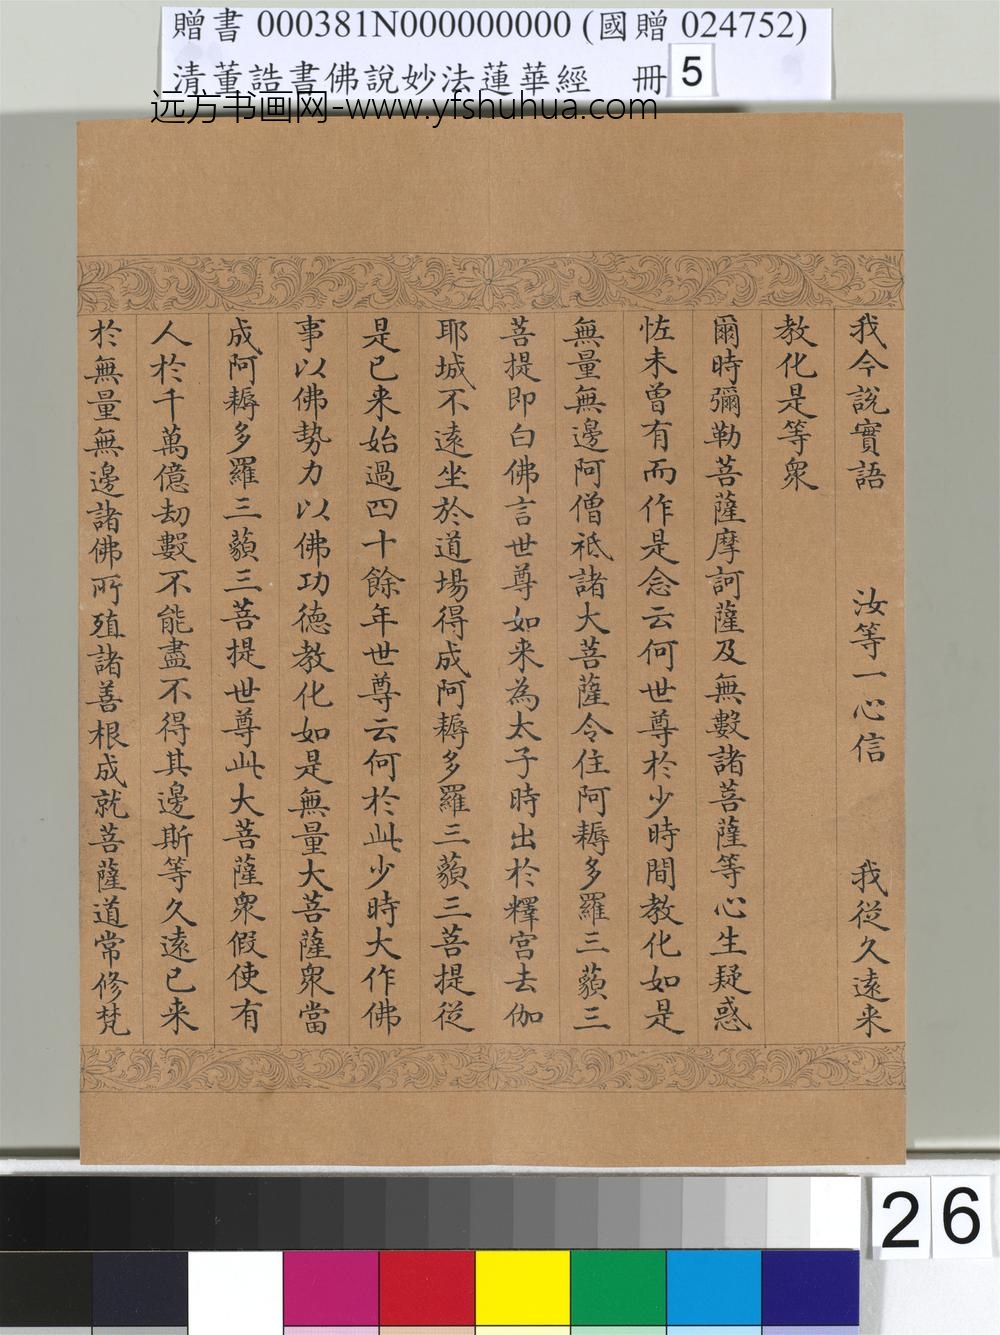 贈書 000381N000000000 (國贈 024752)
清董誥書佛說妙法蓮華經 冊 5
远方书画网-www.yfshuhua.com
我今說實語 汝等一心信 我從久遠来
教化是等衆
爾時彌勒菩薩摩訶薩及無數諸菩薩等心生疑惑
恠未曽有而作是念云何世尊於少時間教化如是
無量無邊阿僧祇諸大菩薩令住阿耨多羅三藐三
菩提即白佛言世尊如来為太子時出於釋宫去伽
耶城不遠坐於道場得成阿耨多羅三藐三菩提從
是已来始過四十餘年世尊云何於此少時大作佛
事以佛勢力以佛功德教化如是無量大菩薩衆當
成阿耨多羅三藐三菩提世尊此大菩薩衆假使有
人於千萬億劫數不能盡不得其邊斯等久遠已来
於無量無邊諸佛所殖諸善根成就菩薩道常修梵
26